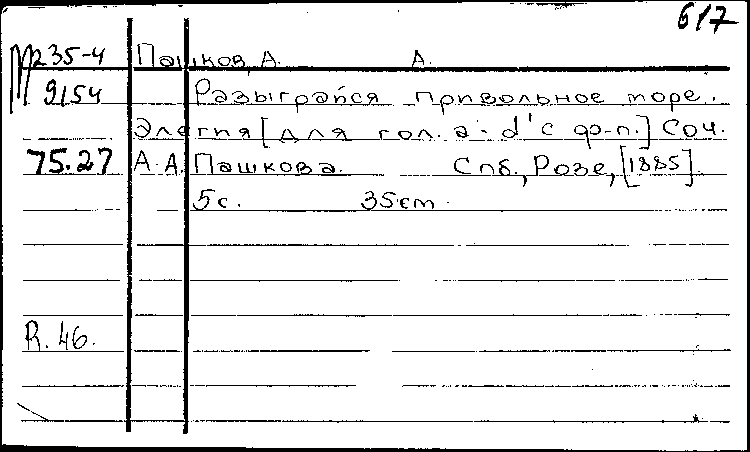 б/7
М235-4 Пашков, А. А.
9154 Разыграйся привольное море.
Элегия [для гол. a - d' с ф-п.] Соч.
75.27 А. А. Пашкова. Спб., Розе, [1885]
5с. 35см.
R. 46.